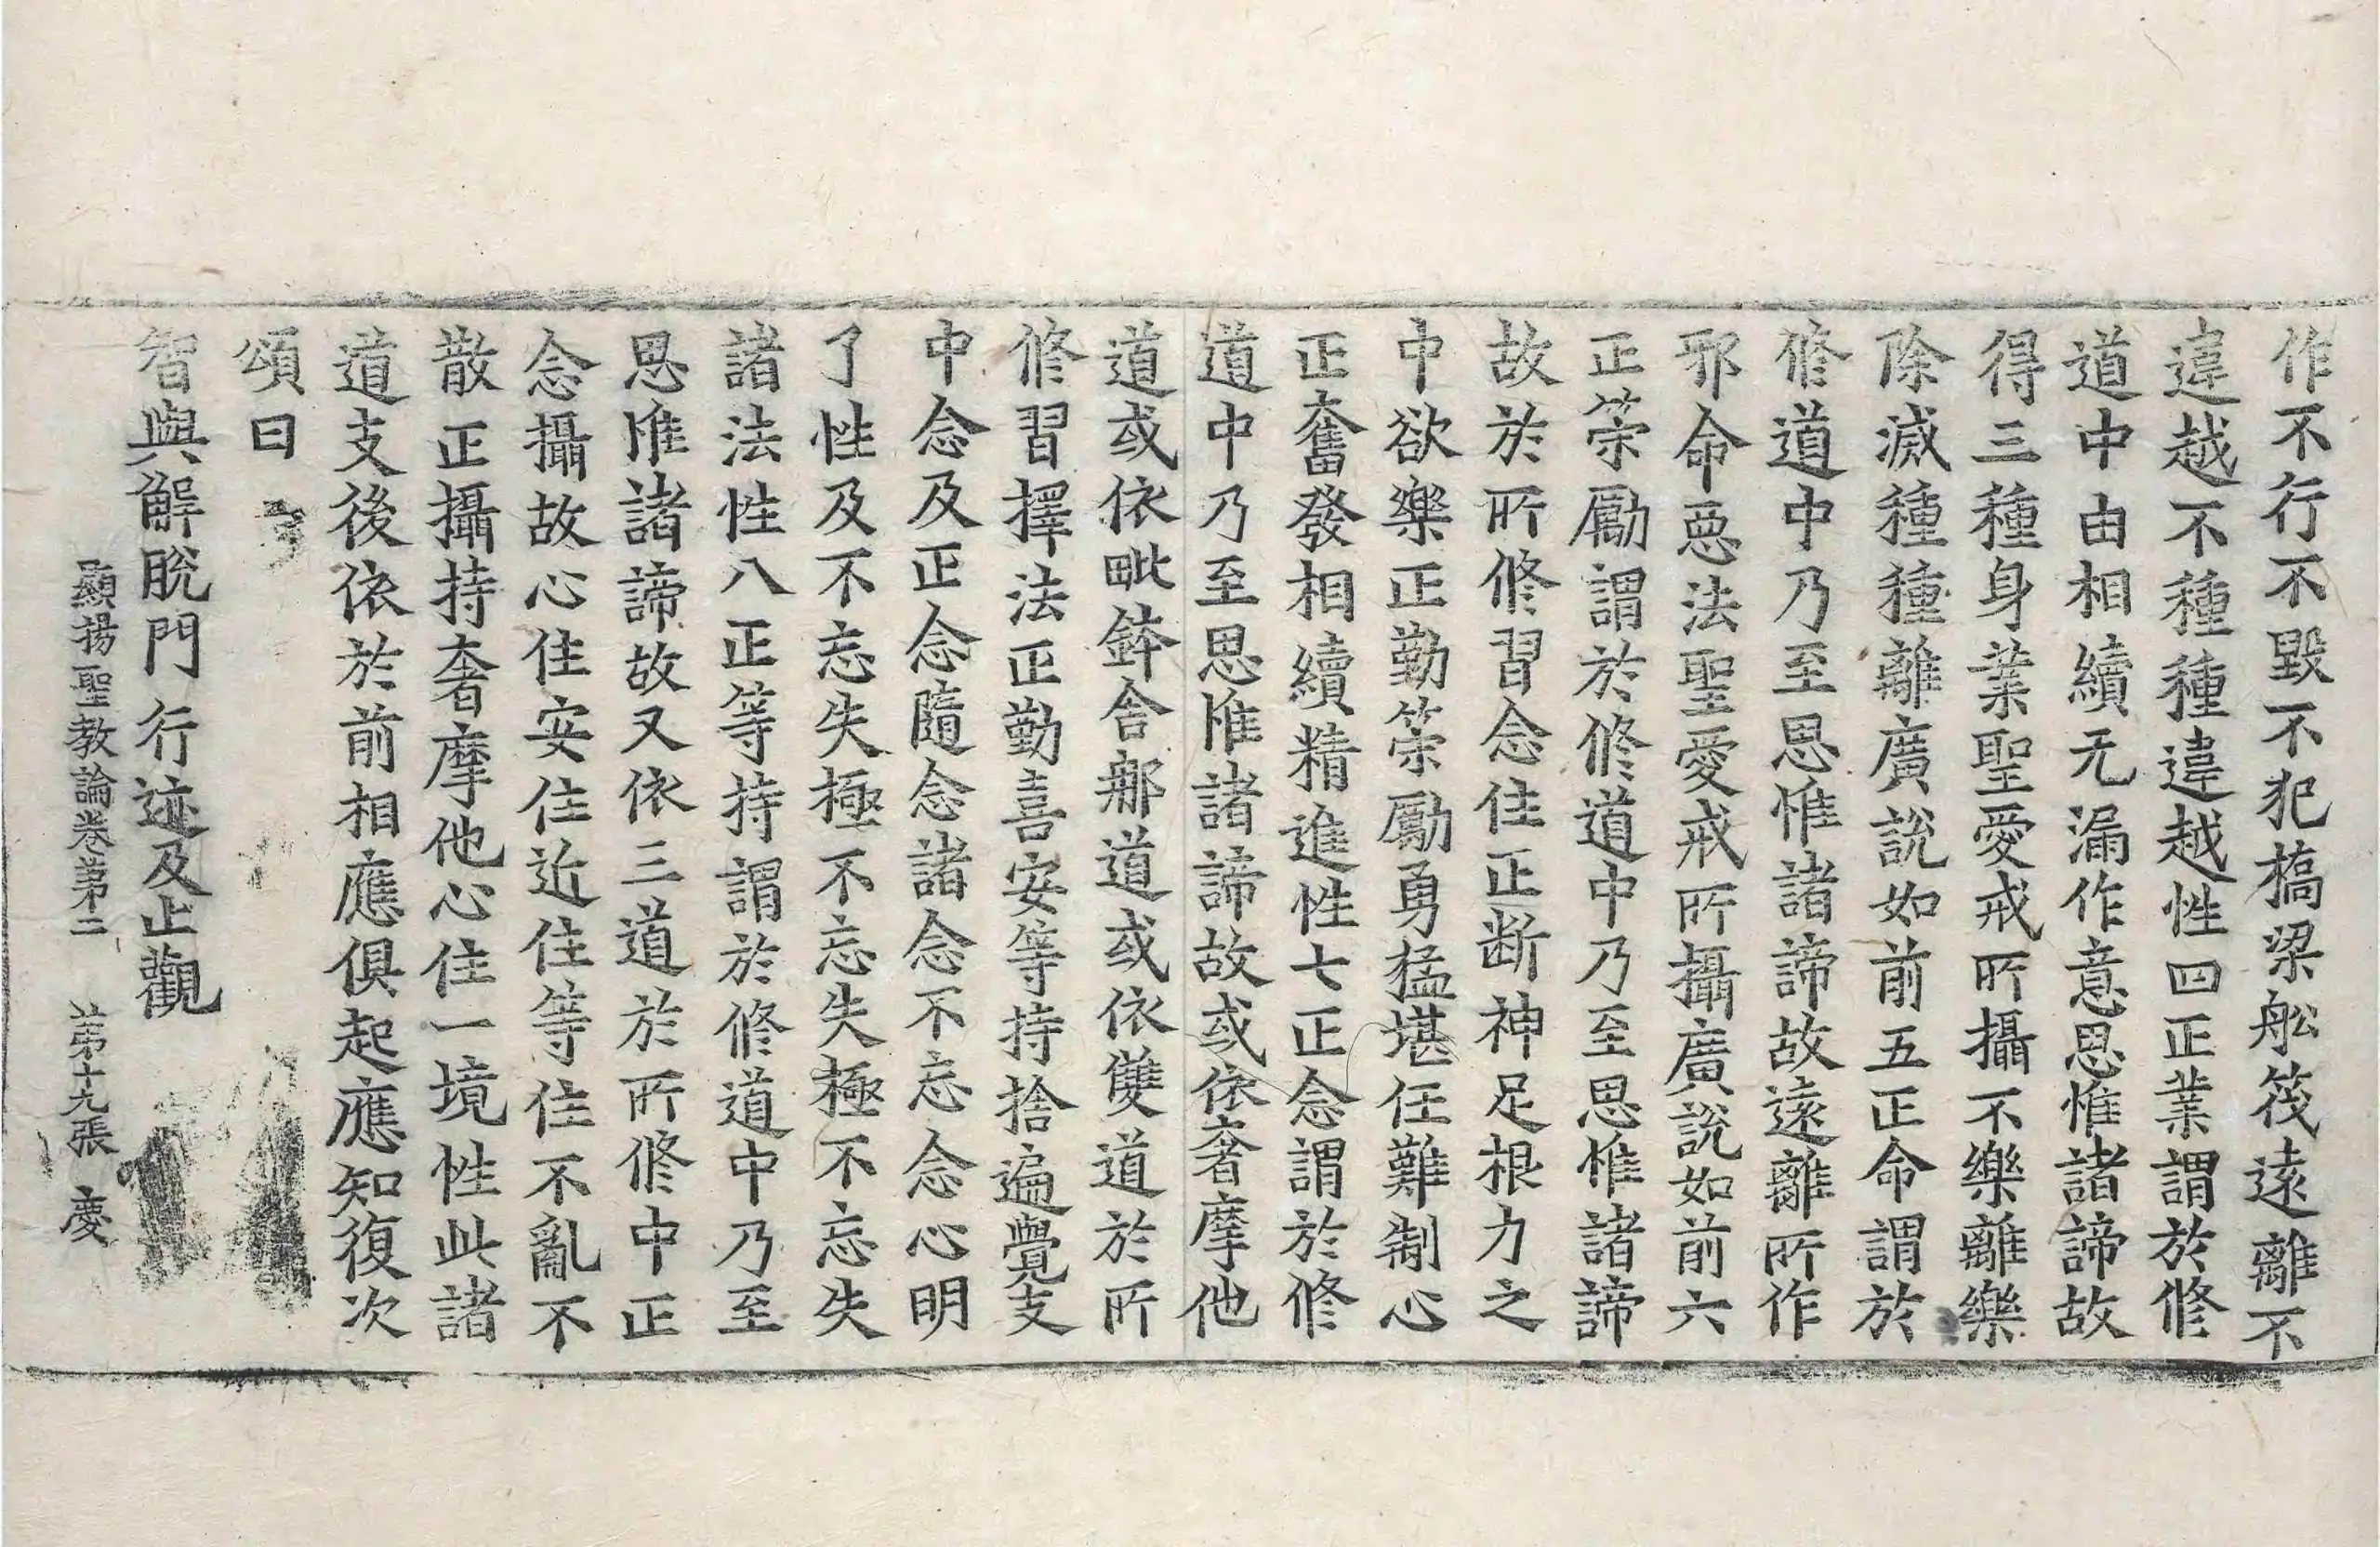 作不行不毀不犯槗梁舩筏遠離不
違越不種種違越性四正業謂於修
道中由相續无漏作意思惟諸諦故
得三種身業聖愛戒所攝不樂離樂
除滅種種離廣說如前五正命謂於
修道中乃至思惟諸諦故遠離所作
邪命惡法聖愛戒所攝廣說如前六
正策勵謂於修道中乃至思惟諸諦
故於所修習念住正断神足根力之
中欲樂正勤策勵勇猛堪任難制心
正奮發相續精進性七正念謂於修
道中乃至思惟諸諦故或依奢摩他
道或依毗鉢舍那道或依雙道於所
修習擇法正勤喜安等持捨遍覺支
中念及正念隨念諸念不忘念心明
了性及不忘失極不忘失極不忘失
諸法性八正等持謂於修道中乃至
思惟諸諦故又依三道於所修中正
念攝故心住安住近住等住不亂不
散正攝持奢摩他心住一境性此諸
道支後依於前相應俱起應知復次
頌曰
智與解脫門行迹及止觀
顯揚聖教論卷第二 第十九張 慶